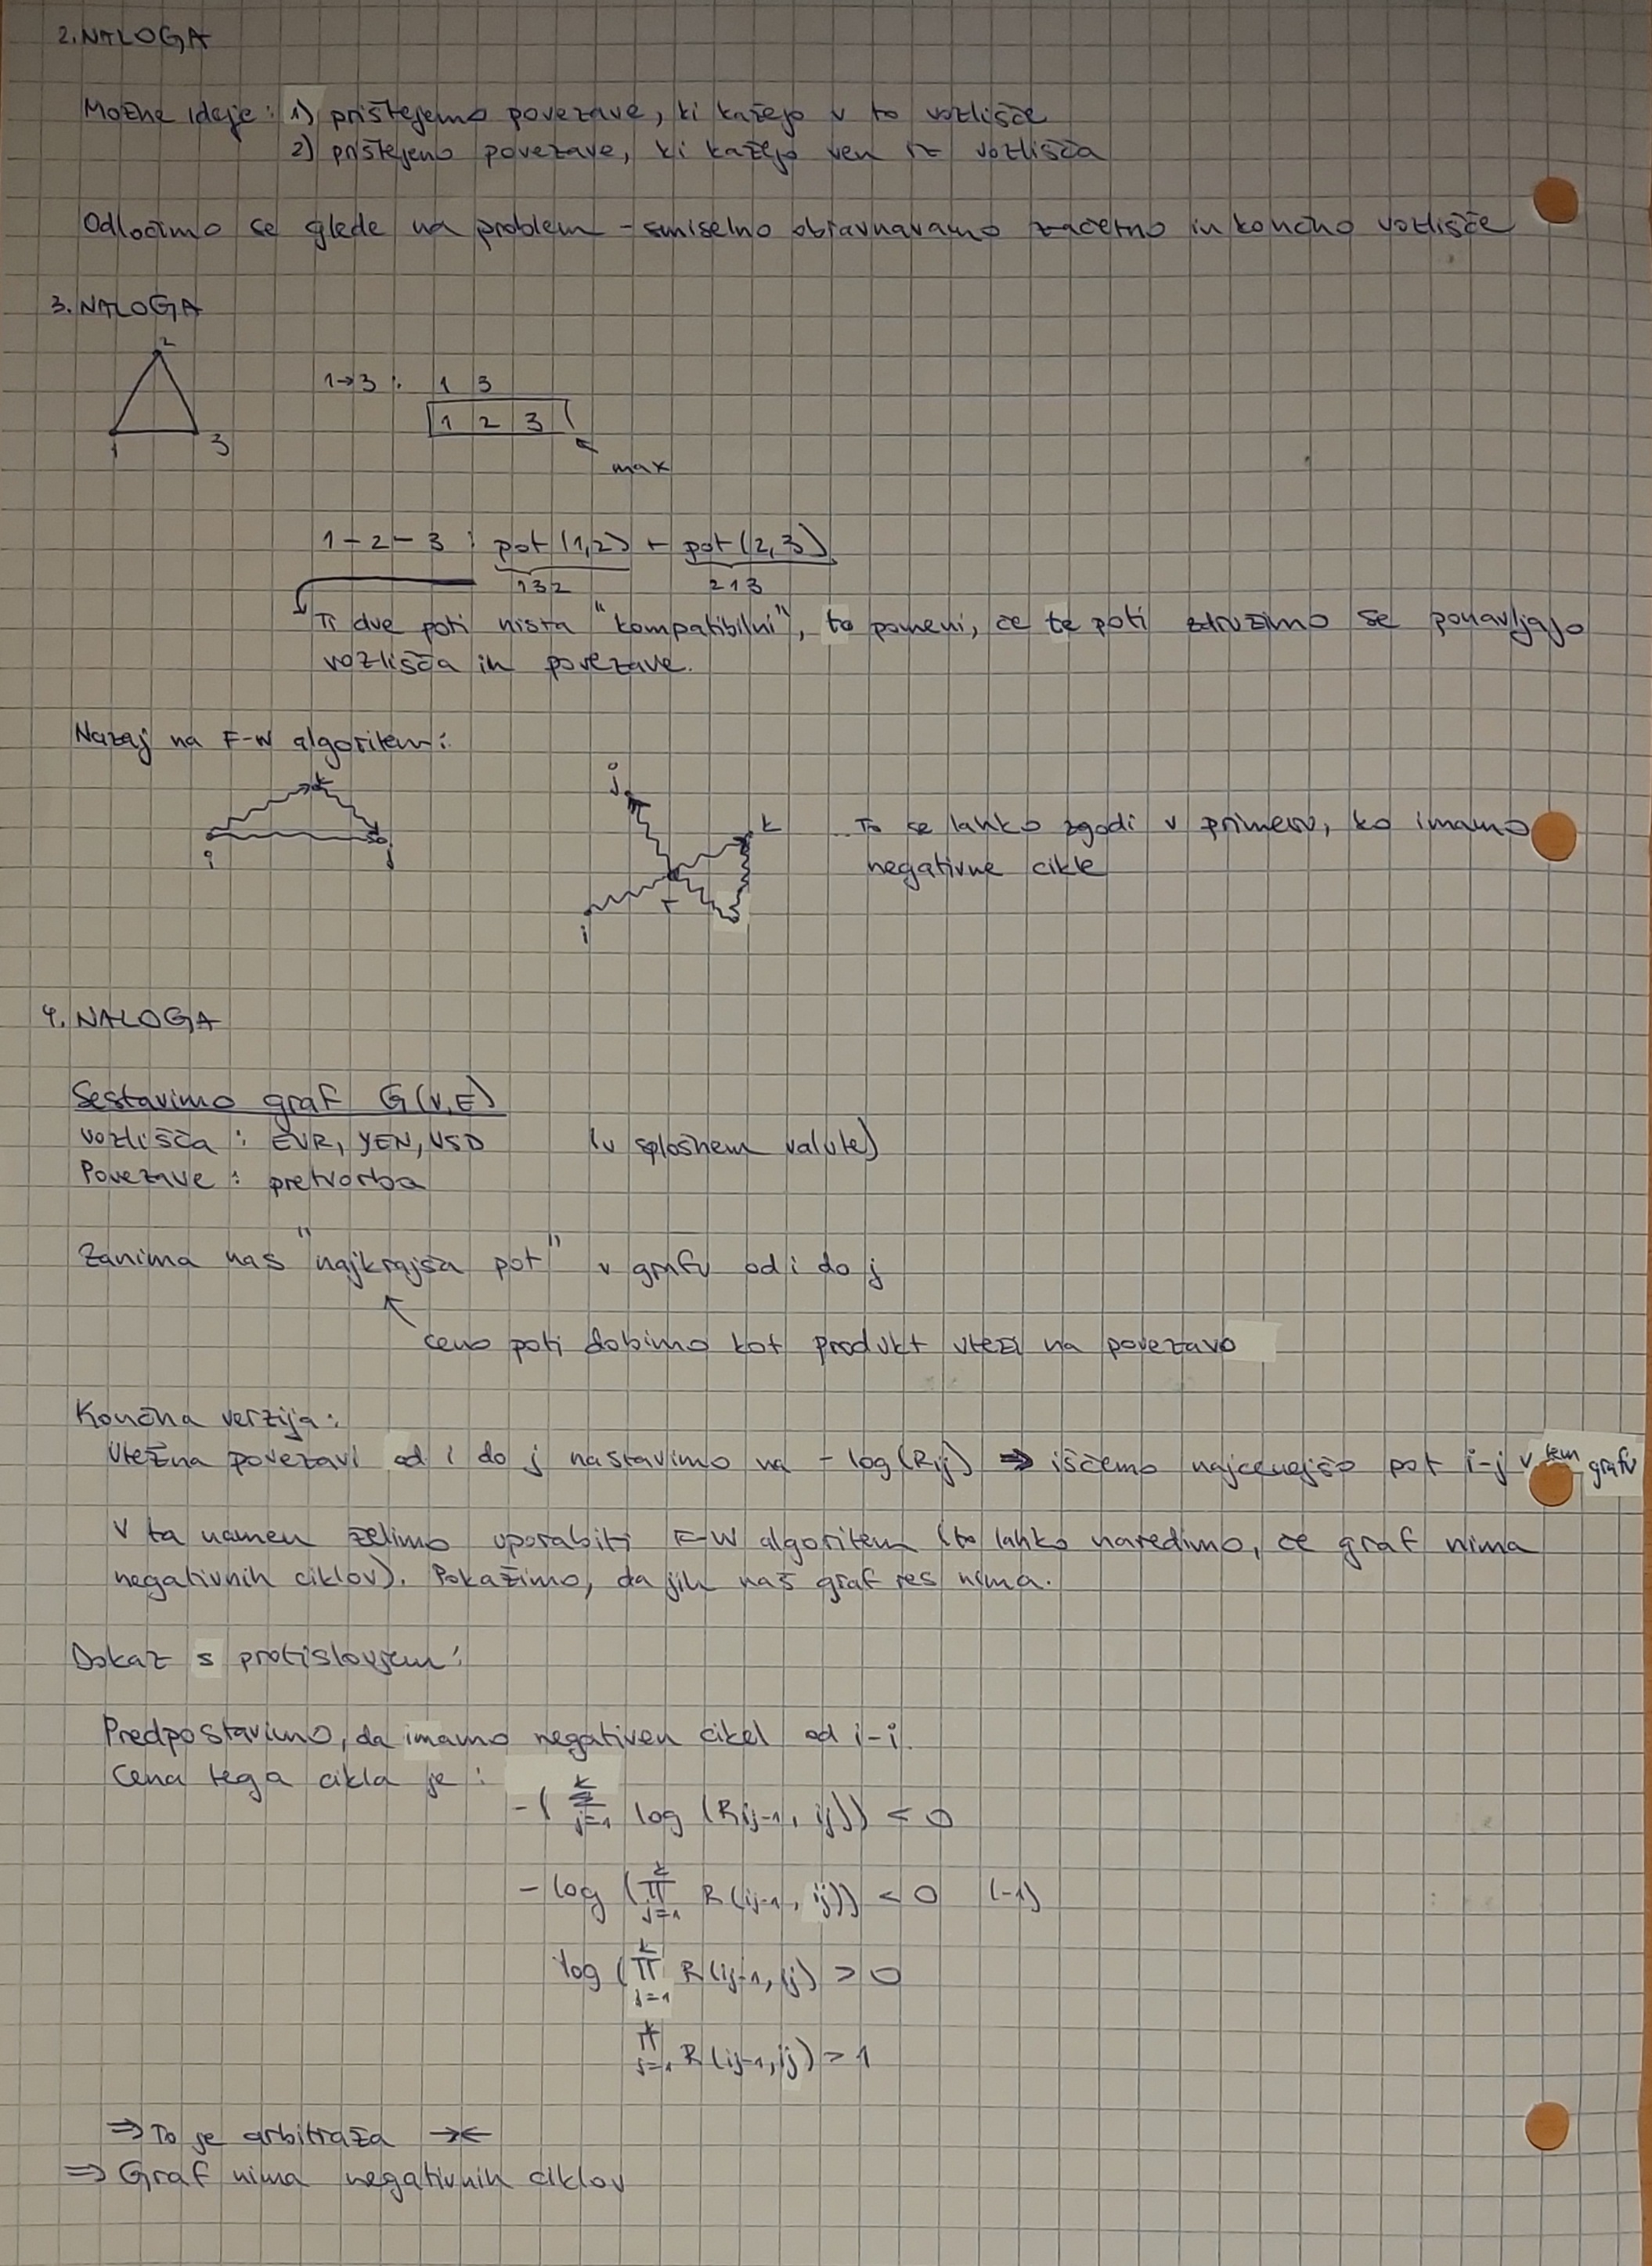 2. NALOGA
Možne ideje: 1) prištejemo povezave, ki kažejo v to vozlišče
2) prištejemo povezave, ki kažejo ven iz vozlišča
Odločimo se glede na problem - smiselno obravnavamo začetno in končno vozlišče
3. NALOGA
2
1 3
1→3 : 1 3
1 2 3
max
1 - 2 - 3 : pot (1,2) + pot (2,3)
132 213
Ti dve poti nista "kompatibilni", to pomeni, če te poti združimo se ponavljajo
vozlišča in povezave.
Nazaj na F-W algoritem:
k
i j
j
k
r
i
To se lahko zgodi v primeru, ko imamo
negativne cikle
4. NALOGA
Sestavimo graf G(V,E)
vozlišča : EVR, YEN, USD (v splošnem valute)
Povezave : pretvorba
Zanima nas "najkrajša pot" v grafu od i do j
ceno poti dobimo kot produkt uteži na povezavo
Končna verzija:
Utež na povezavi od i do j nastavimo na - log(Rij) ⇒ iščemo najcenejšo pot i-j v tem grafu
V ta namen želimo uporabiti F-W algoritem (to lahko naredimo, če graf nima
negativnih ciklov). Pokažimo, da jih naš graf res nima.
Dokaz s protislovjem:
Predpostavimo, da imamo negativen cikel od i-i.
Cena tega cikla je :
- ( k Σ j=1 log (Rij-1, ij)) < 0
- log ( k Π j=1 R(ij-1, ij)) < 0 (-1)
log ( k Π j=1 R(ij-1, ij) > 0
k Π j=1 R(ij-1, ij) > 1
⇒ To je arbitraža →←
⇒ Graf nima negativnih ciklov